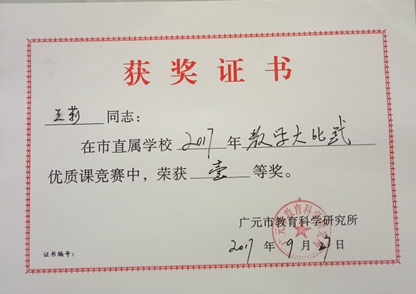 获奖证书
王莉 同志：
在市直属学校 2017 年 教学大比武
优质课竞赛中，荣获 壹 等奖。
广元市教育科学研究所
2017 年 9 月 27 日
证书编号：